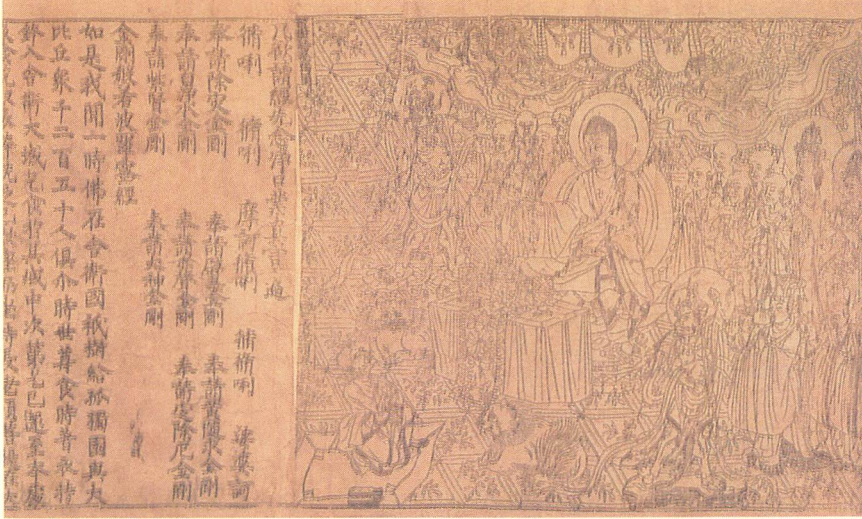 凡欲讀經先念淨口業真言 遍
脩唎 脩唎 摩訶脩唎 脩脩唎 娑婆訶
奉請除灾金剛 奉請辟毒金剛 奉請黃隨求金剛
奉請白淨水金剛 奉請赤聲金剛 奉請定除厄金剛
奉請紫賢金剛 奉請大神金剛
金剛般若波羅蜜經
如是我聞一時佛在舍衛國祇樹給孤獨園與大
比丘衆千二百五十人俱尒時世尊食時著衣持
鉢入舍衛大城乞食於其城中次第乞已還至本處